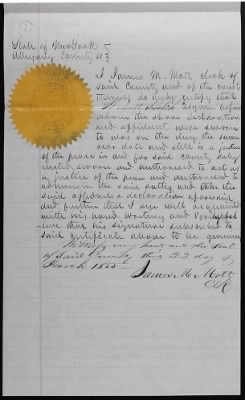 State of New York
Allegany County } ss
I James M. Mott clerk of
said County and of the court
thereof do hereby certify that
Esquire before
whom the above declaration
and affidavit were sworn
to was on the day the same
was done and still is a justice
of the peace in and for said county duly
elected sworn and authorized to act as
a justice of the peace and authorized to
administer the said oaths and take the
said affidavit & declaration aforesaid
and further that I am well acquainted
with his hand writing and
that his signature subscribed to
said certificate above to be genuine
Witness my hand and the seal
of said County this 23 day of
March 1855
James M. Mott
Clk